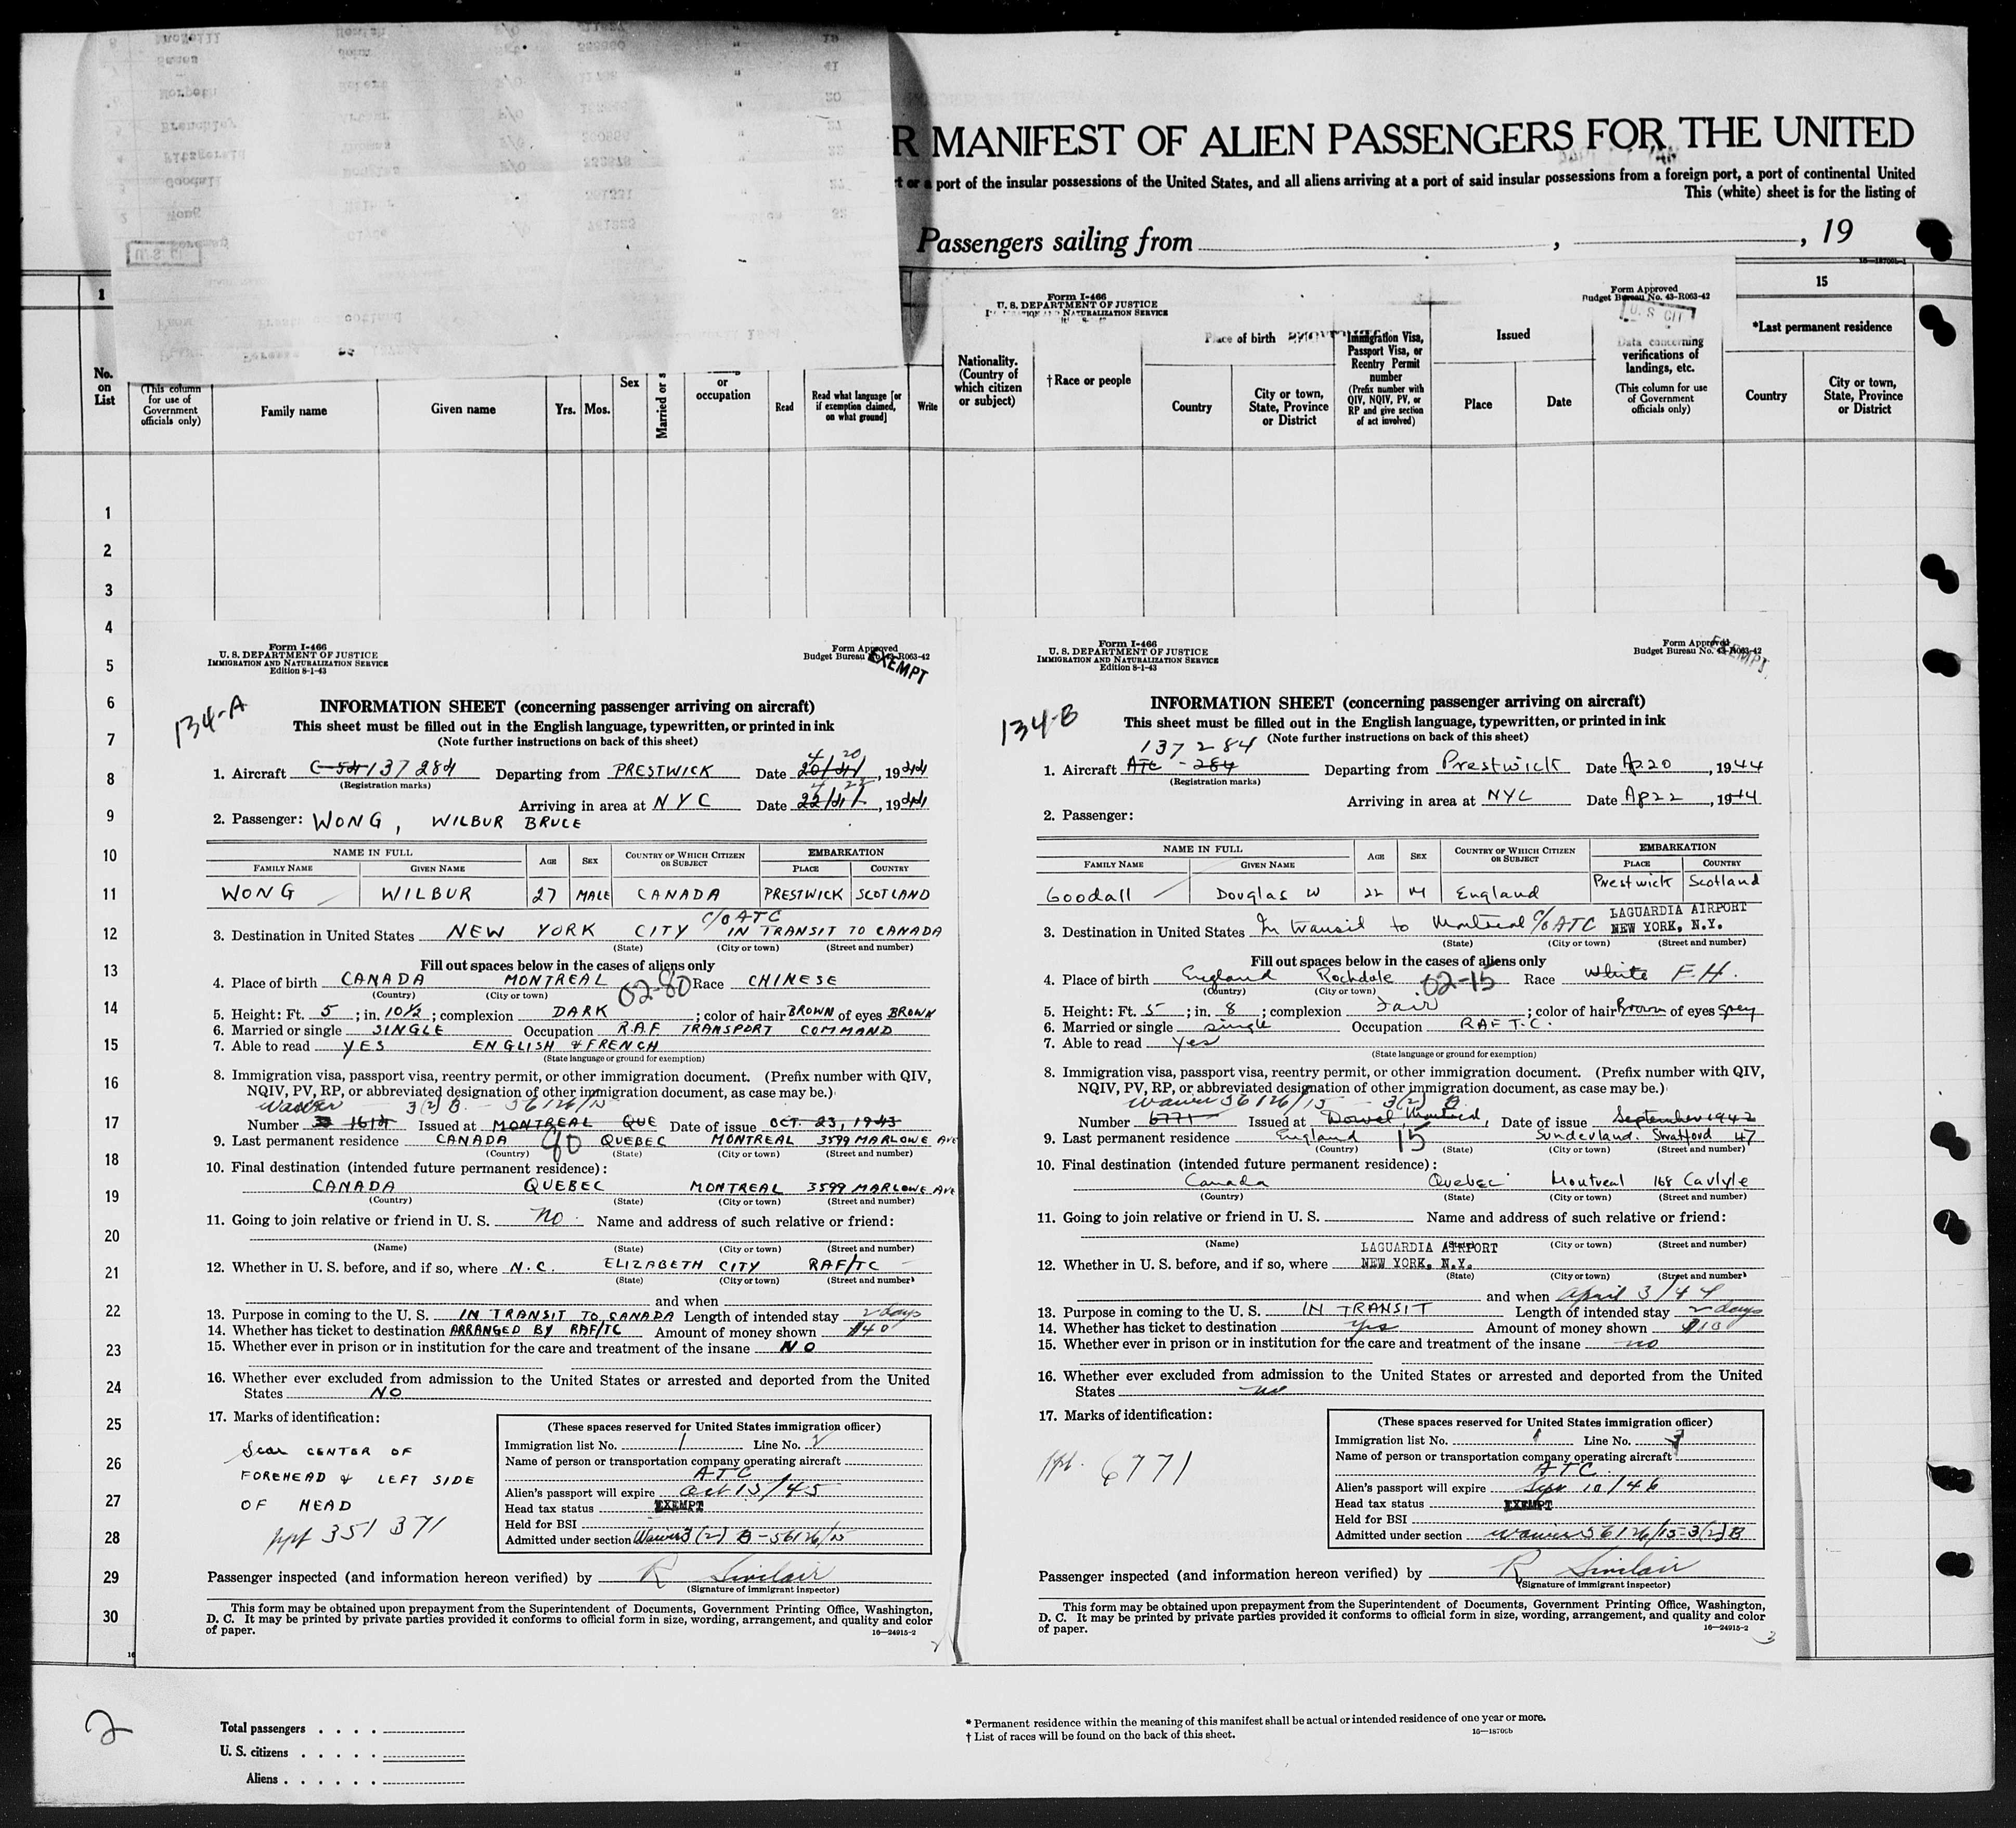 R MANIFEST OF ALIEN PASSENGERS FOR THE UNITED
port of the insular possessions of the United States, and all aliens arriving at a port of said insular possessions from a foreign port, a port of continental United
This (white) sheet is for the listing of
Passengers sailing from , , 19
1
15
Form I-466
U. S. DEPARTMENT OF JUSTICE
Form Approved
Budget Bureau No. 43-R063-42
U. S. CIT
No. on List
(This column for use of Government officials only)
Family name
Given name
Yrs.
Mos.
Sex
Married or s
or occupation
Read
Read what language [or if exemption claimed, on what ground]
Write
Nationality. (Country of which citizen or subject)
†Race or people
Place of birth
Country
City or town, State, Province or District
Immigration Visa, Passport Visa, or Reentry Permit number
(Prefix number with QIV, NQIV, PV, or RP and give section of act involved)
Issued
Place
Date
Data concerning verifications of landings, etc.
(This column for use of Government officials only)
*Last permanent residence
Country
City or town, State, Province or District
1
2
3
4
5
6
7
8
9
10
11
12
13
14
15
16
17
18
19
20
21
22
23
24
25
26
27
28
29
30
Form I-466
U. S. DEPARTMENT OF JUSTICE
IMMIGRATION AND NATURALIZATION SERVICE
Edition 8-1-43
Form Approved
Budget Bureau No. 43-R063-42
EXEMPT
134-A
INFORMATION SHEET (concerning passenger arriving on aircraft)
This sheet must be filled out in the English language, typewritten, or printed in ink
(Note further instructions on back of this sheet)
1. Aircraft C-54 137284 Departing from PRESTWICK Date 4 20, 1944
(Registration marks)
Arriving in area at NYC Date 4 22, 1944
2. Passenger: WONG, WILBUR BRUCE
NAME IN FULL
FAMILY NAME GIVEN NAME AGE SEX COUNTRY OF WHICH CITIZEN OR SUBJECT EMBARKATION PLACE COUNTRY
WONG WILBUR 27 MALE CANADA PRESTWICK SCOTLAND
c/o ATC
3. Destination in United States NEW YORK CITY IN TRANSIT TO CANADA
(State) (City or town) (Street and number)
Fill out spaces below in the cases of aliens only
4. Place of birth CANADA MONTREAL 02-80 Race CHINESE
(Country) (City or town)
5. Height: Ft. 5; in. 10½; complexion DARK; color of hair BROWN of eyes BROWN
6. Married or single SINGLE Occupation R.A.F TRANSPORT COMMAND
7. Able to read YES ENGLISH & FRENCH
(State language or ground for exemption)
8. Immigration visa, passport visa, reentry permit, or other immigration document. (Prefix number with QIV, NQIV, PV, RP, or abbreviated designation of other immigration document, as case may be.)
Waiver 3(2) B - 56126/15
Number 1614 Issued at MONTREAL QUE Date of issue OCT. 23, 1943
9. Last permanent residence CANADA 80 QUEBEC MONTREAL 3599 MARLOWE AVE
(Country) (State) (City or town) (Street and number)
10. Final destination (intended future permanent residence):
CANADA QUEBEC MONTREAL 3599 MARLOWE AVE
(Country) (State) (City or town) (Street and number)
11. Going to join relative or friend in U. S. no. Name and address of such relative or friend:
(Name) (State) (City or town) (Street and number)
12. Whether in U. S. before, and if so, where N.C. ELIZABETH CITY RAF/TC
(State) (City or town) (Street and number)
and when
13. Purpose in coming to the U. S. IN TRANSIT TO CANADA Length of intended stay 2 days
14. Whether has ticket to destination ARRANGED BY RAF/TC Amount of money shown $40
15. Whether ever in prison or in institution for the care and treatment of the insane NO
16. Whether ever excluded from admission to the United States or arrested and deported from the United States NO
17. Marks of identification:
Scar CENTER OF
FOREHEAD & LEFT SIDE
OF HEAD
ppt 351371
(These spaces reserved for United States immigration officer)
Immigration list No. 1 Line No. 2
Name of person or transportation company operating aircraft
ATC
Alien's passport will expire Oct 15/45
Head tax status EXEMPT
Held for BSI
Admitted under section Waiver 3(2) B-56126/15
Passenger inspected (and information hereon verified) by R Sinclair
(Signature of immigrant inspector)
This form may be obtained upon prepayment from the Superintendent of Documents, Government Printing Office, Washington, D. C. It may be printed by private parties provided it conforms to official form in size, wording, arrangement, and quality and color of paper.
16—24915-2
2
Form I-466
U. S. DEPARTMENT OF JUSTICE
IMMIGRATION AND NATURALIZATION SERVICE
Edition 8-1-43
Form Approved
Budget Bureau No. 43-R063-42
EXEMPT
134-B
INFORMATION SHEET (concerning passenger arriving on aircraft)
This sheet must be filled out in the English language, typewritten, or printed in ink
(Note further instructions on back of this sheet)
137284
1. Aircraft ATC - 284 Departing from Prestwick Date Ap 20, 1944
(Registration marks)
Arriving in area at NYC Date Ap 22, 1944
2. Passenger:
NAME IN FULL
FAMILY NAME GIVEN NAME AGE SEX COUNTRY OF WHICH CITIZEN OR SUBJECT EMBARKATION PLACE COUNTRY
Goodall Douglas W 22 M England Prestwick Scotland
3. Destination in United States In transit to Montreal c/o ATC LAGUARDIA AIRPORT NEW YORK, N.Y.
(State) (City or town) (Street and number)
Fill out spaces below in the cases of aliens only
4. Place of birth England Rochdale 02-15 Race White E.H.
(Country) (City or town)
5. Height: Ft. 5; in. 8; complexion Fair; color of hair Brown of eyes grey
6. Married or single single Occupation RAF T.C.
7. Able to read Yes
(State language or ground for exemption)
8. Immigration visa, passport visa, reentry permit, or other immigration document. (Prefix number with QIV, NQIV, PV, RP, or abbreviated designation of other immigration document, as case may be.)
Waiver 56126/15 - 3(2) B
Number 6771 Issued at Dorval, Montreal, Date of issue September 1942
9. Last permanent residence England 15 Sunderland. Stratford 47
(Country) (State) (City or town) (Street and number)
10. Final destination (intended future permanent residence):
Canada Quebec Montreal 168 Carlyle
(Country) (State) (City or town) (Street and number)
11. Going to join relative or friend in U. S. Name and address of such relative or friend:
(Name) (State) (City or town) (Street and number)
12. Whether in U. S. before, and if so, where LAGUARDIA AIRPORT NEW YORK, N.Y.
(State) (City or town) (Street and number)
and when April 3/44
13. Purpose in coming to the U. S. IN TRANSIT Length of intended stay 2 days
14. Whether has ticket to destination yes Amount of money shown $10
15. Whether ever in prison or in institution for the care and treatment of the insane no
16. Whether ever excluded from admission to the United States or arrested and deported from the United States no
17. Marks of identification:
ppt. 6771
(These spaces reserved for United States immigration officer)
Immigration list No. 1 Line No. 3
Name of person or transportation company operating aircraft
ATC.
Alien's passport will expire Sept 10/46
Head tax status EXEMPT
Held for BSI
Admitted under section waiver 56126/15-3(2) B
Passenger inspected (and information hereon verified) by R Sinclair
(Signature of immigrant inspector)
This form may be obtained upon prepayment from the Superintendent of Documents, Government Printing Office, Washington, D. C. It may be printed by private parties provided it conforms to official form in size, wording, arrangement, and quality and color of paper.
16—24915-2
3
2
Total passengers
U. S. citizens
Aliens
* Permanent residence within the meaning of this manifest shall be actual or intended residence of one year or more.
† List of races will be found on the back of this sheet.
16—18706b